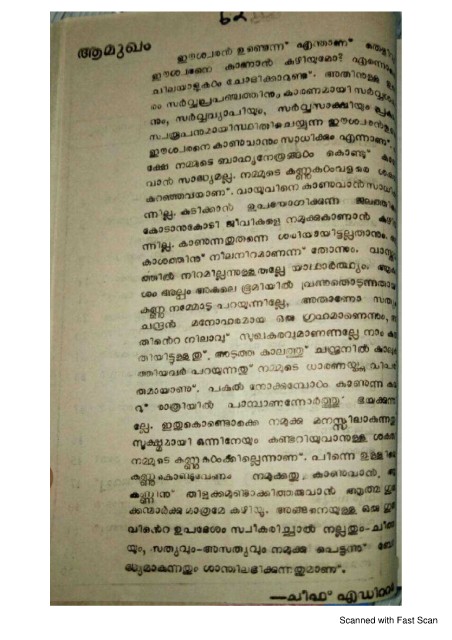 ൬൨
ആമുഖം
ഈശ്വരൻ ഉണ്ടെന്ന് എന്താണ്
ഈശ്വരനെ കാണാൻ കഴിയുമോ?
ചിലയാളുകൾ ചോദിക്കാറുണ്ട്. അതിനുള്ള
രം സർവ്വപ്രപഞ്ചത്തിനും, കാരണമായി
നും, സർവ്വവ്യാപിയും, സർവ്വസാക്ഷിയും
സ്വരൂപനുമായിസ്ഥിതിചെയ്യുന്ന
ഈശ്വരനെ കാണുവാനും സാധിക്കും എന്നാണ്.
ക്ഷേ നമ്മുടെ ബാഹ്യനേത്രങ്ങൾ കൊണ്ട്
വാൻ സാദ്ധ്യമല്ല. നമ്മുടെ കണ്ണുകൾവളരെ
കുറഞ്ഞവയാണ്. വായുവിനെ കാണുവാൻ
ന്നില്ല. കുടിക്കാൻ ഉപയോഗിക്കുന്ന
കോടാനുകോടി ജീവികളെ നമുക്കുകാണാൻ
ന്നില്ല. കാണുന്നതുതന്നെ ശരിയായിട്ടല്ലതാനും.
കാശത്തിന് നീലനിറമാണന്ന് തോന്നും.
ത്തിൽ നിറമില്ലന്നുള്ളതല്ലേ യാഥാർത്ഥ്യം.
ശം അല്പം അകലെ ഭൂമിയിൽ
കണ്ണു നമ്മോടു പറയുന്നില്ലേ, അതാണോ
ചന്ദ്രൻ മനോഹരമായ ഒരു ഗ്രഹമാണെന്നും,
തിൻെറ നിലാവ് സുഖകരവുമാണന്നല്ലേ നാം
തിയിട്ടുള്ളത്. അടുത്ത കാലത്തു് ചന്ദ്രനിൽ
ത്തിയവർ പറയുന്നത് നമ്മുടെ ധാരണയ്ക്കു
തമായാണ്. പകൽ നോക്കുമ്പോൾ കാണുന്ന
റ് രാത്രിയിൽ പാമ്പാണന്നോർത്തു്
ല്ലേ. ഇതുകൊണ്ടൊക്കെ നമുക്കു മനസ്സിലാകുന്നതു
സൂക്ഷ്മമായി ഒന്നിനേയും കണ്ടറിയുവാനുള്ള
നമ്മുടെ കണ്ണുകൾക്കില്ലെന്നാണ്. പിന്നെ
കണ്ണുകൊണ്ടുവേണം നമുക്കതു കാണുവാൻ,
കണ്ണിന് തിളക്കമുണ്ടാക്കിത്തരുവാൻ ആത്മ
ക്കന്മാർക്കു മാത്രമേ കഴിയൂ. അങ്ങനെയുള്ള ഒരു
വിൻെറ ഉപദേശം സ്വീകരിച്ചാൽ നല്ലതും-
യും, സത്യവും-അസത്യവും നമുക്കു
ദ്ധ്യമാകുന്നതും ശാന്തിലഭിക്കുന്നതുമാണ്.
—ചീഫ് എഡിറ്റർ
Scanned with Fast Scan